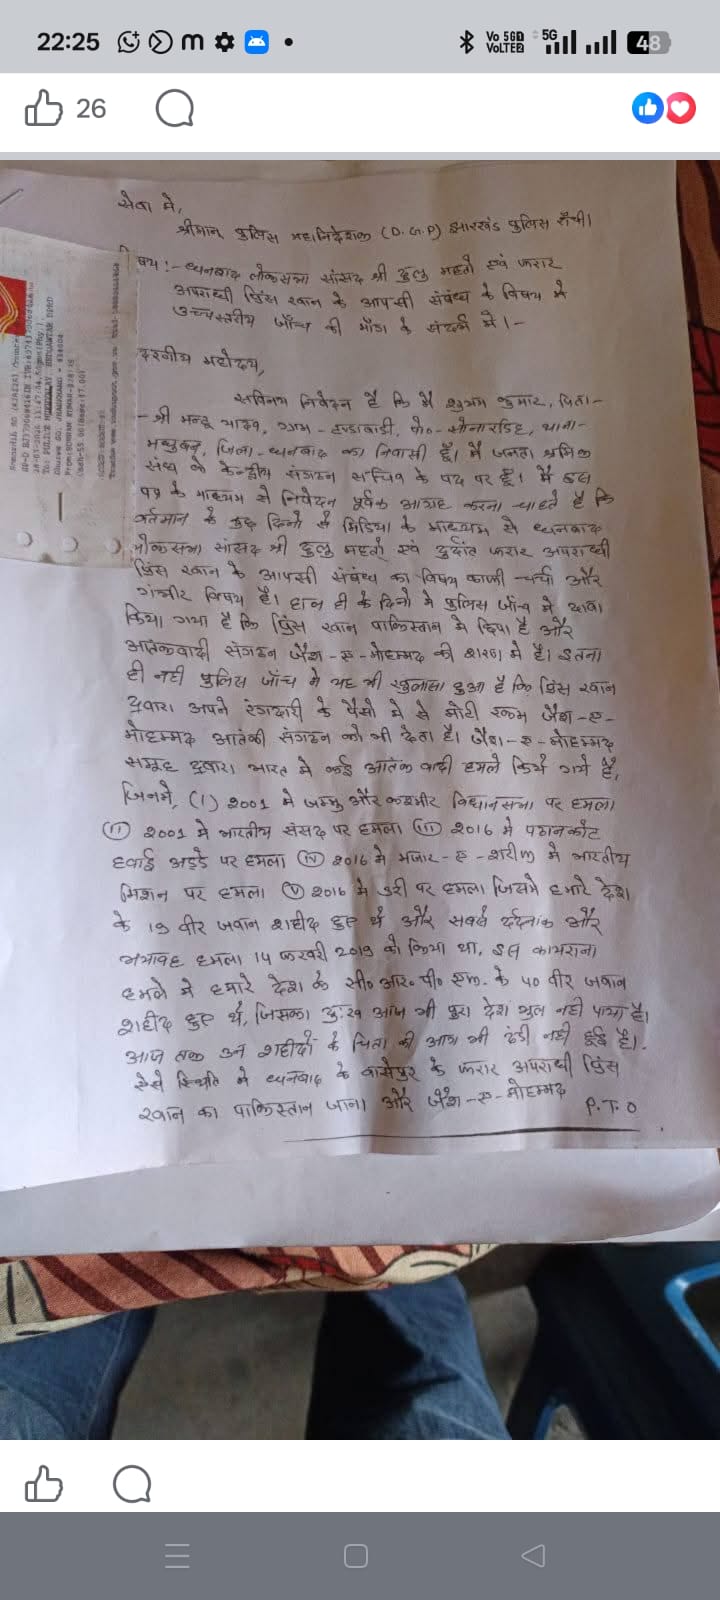 22:25
Vo 5G VoLTE2 5G 48
26
सेवा में,
श्रीमान् पुलिस महानिदेशक (D.G.P) झारखंड पुलिस राँची।
विषय:- धनबाद लोकसभा सांसद श्री ढुलु महतो एवं फरार
अपराधी प्रिंस खान के आपसी संबंध के विषय में
उच्चस्तरीय जाँच की माँग के संदर्भ में।-
महोदय,
सविनय निवेदन है कि मैं शुभम कुमार, पिता-
- श्री मन्टू यादव, ग्राम - पो०- सोनारडिह, थाना-
मधुबन, जिला- धनबाद का निवासी हूँ। मैं जनता श्रमिक
संघ के केन्द्रीय संगठन सचिव के पद पर हूँ। मैं इस
पत्र के माध्यम से निवेदन पूर्वक आग्रह करना चाहते है कि
वर्तमान के कुछ दिनों से मिडिया के माध्यम से धनबाद
लोकसभा सांसद श्री ढुलु महतो एवं दुर्दांत फरार अपराधी
प्रिंस खान के आपसी संबंध का विषय काफी चर्चा और
गंभीर विषय है। हाल ही के दिनो मे पुलिस जाँच मे दावा
किया गया है कि प्रिंस खान पाकिस्तान मे छिपा है और
आतंकवादी संगठन जैश-ए-मोहम्मद की शरण मे है। इतना
ही नही पुलिस जाँच मे यह भी खुलासा हुआ है कि प्रिंस खान
द्वारा अपने रंगदारी के पैसो मे से मोटी रकम जैश-ए-
मोहम्मद आतंकी संगठन को भी देता है। जैश-ए-मोहम्मद
समूह द्वारा भारत मे कई आतंकवादी हमले किये गये है,
जिनमे, (I) 2001 मे जम्मु और कश्मीर विधानसभा पर हमला
(II) 2001 मे भारतीय संसद पर हमला (III) 2016 मे पठानकोट
हवाई अड्डे पर हमला (IV) 2016 मे मजार-ए-शरीफ मे भारतीय
मिशन पर हमला (V) 2016 मे उरी पर हमला जिसमे हमारे देश
के 19 वीर जवान शहीद हुए थे और सबसे दर्दनाक और
भयावह हमला 14 फरवरी 2019 को किया था, इस कायराना
हमले मे हमारे देश के सी० आर० पी० एफ. के 40 वीर जवान
शहीद हुए थे, जिसका दुःख आज भी पुरा देश भुल नही पाया है।
आज तक उन शहीदों के चिता की आग भी ठंडी नही हुई है।
ऐसे स्थिति मे धनबाद के वासेपुर के फरार अपराधी प्रिंस
खान का पाकिस्तान जाना और जैश-ए-मोहम्मद
P.T.O